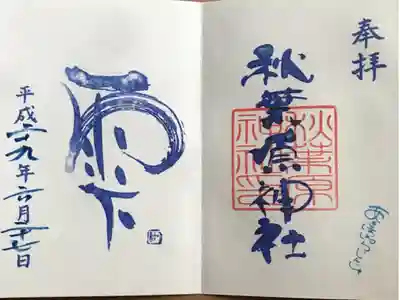 奉拝
秋葉原神社
雫
平成二十九年六月十七日